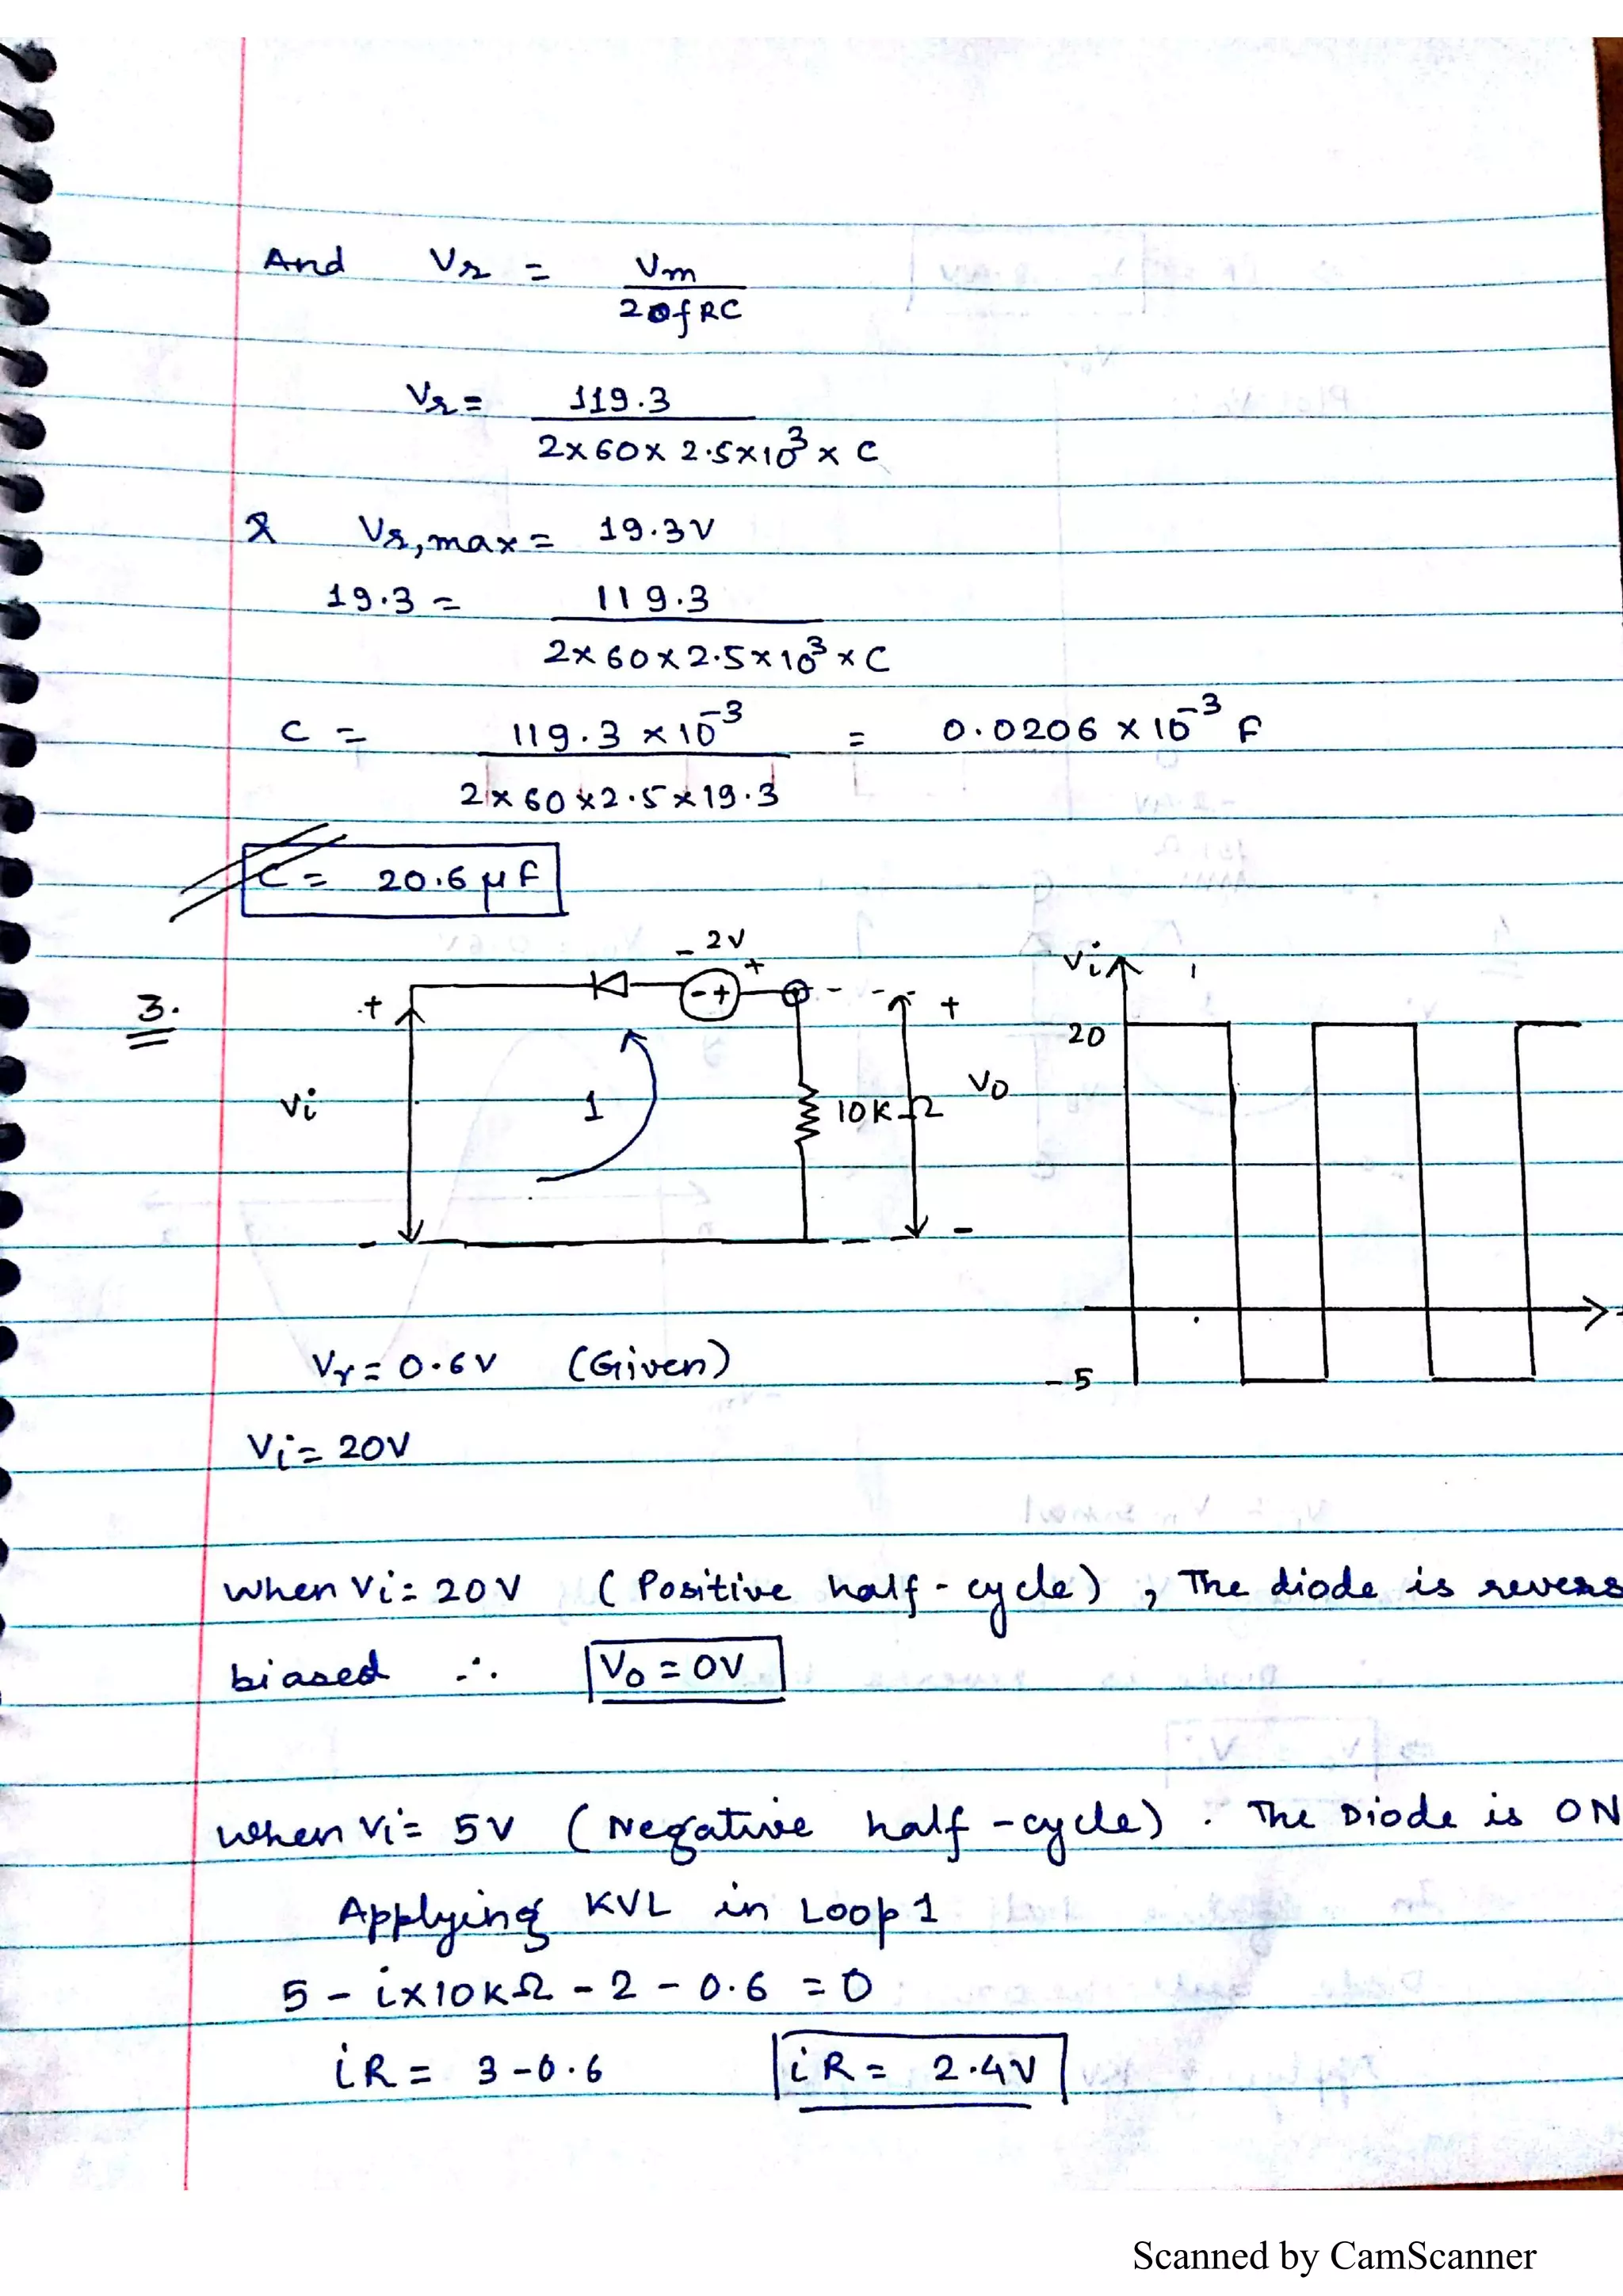 And Vr = Vm / 2fRC
Vr = 119.3 / 2×60×2.5×10³×C
& Vr,max = 19.3V
19.3 = 119.3 / 2×60×2.5×10³×C
C = 119.3×10⁻³ / 2×60×2.5×19.3 = 0.0206×10⁻³ F
C = 20.6 μF
3.
- 2V +
- +
+ Vi -
1
10KΩ
+ Vo -
Vi
20
-5
Vγ = 0.6V (Given)
Vi = 20V
When Vi = 20V (Positive half-cycle), The diode is revers
biased ∴ Vo = 0V
When Vi = 5V (Negative half-cycle). The Diode is ON
Applying KVL in Loop 1
5 - i×10KΩ - 2 - 0.6 = 0
iR = 3-0.6 iR = 2.4V
Scanned by CamScanner